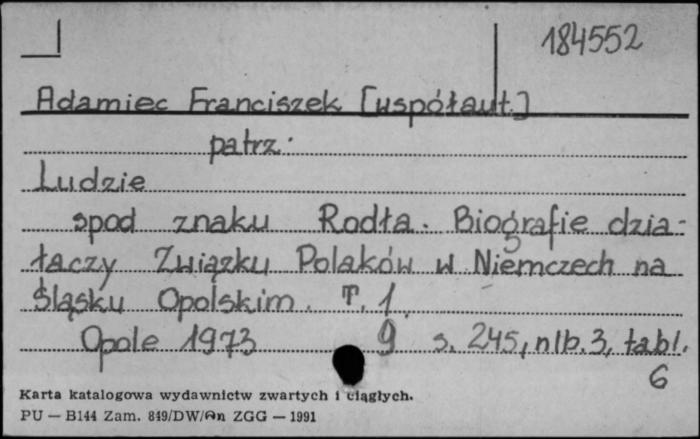 184552
Adamiec Franciszek [współaut.]
patrz:
Ludzie
spod znaku Rodła. Biografie dzia-
łaczy Związku Polaków w Niemczech na
Śląsku Opolskim. T. 1.
Opole 1973 9 s. 245, nlb. 3, tabl.
6
Karta katalogowa wydawnictw zwartych i ciągłych.
PU — B144 Zam. 849/DW/ ZGG — 1991